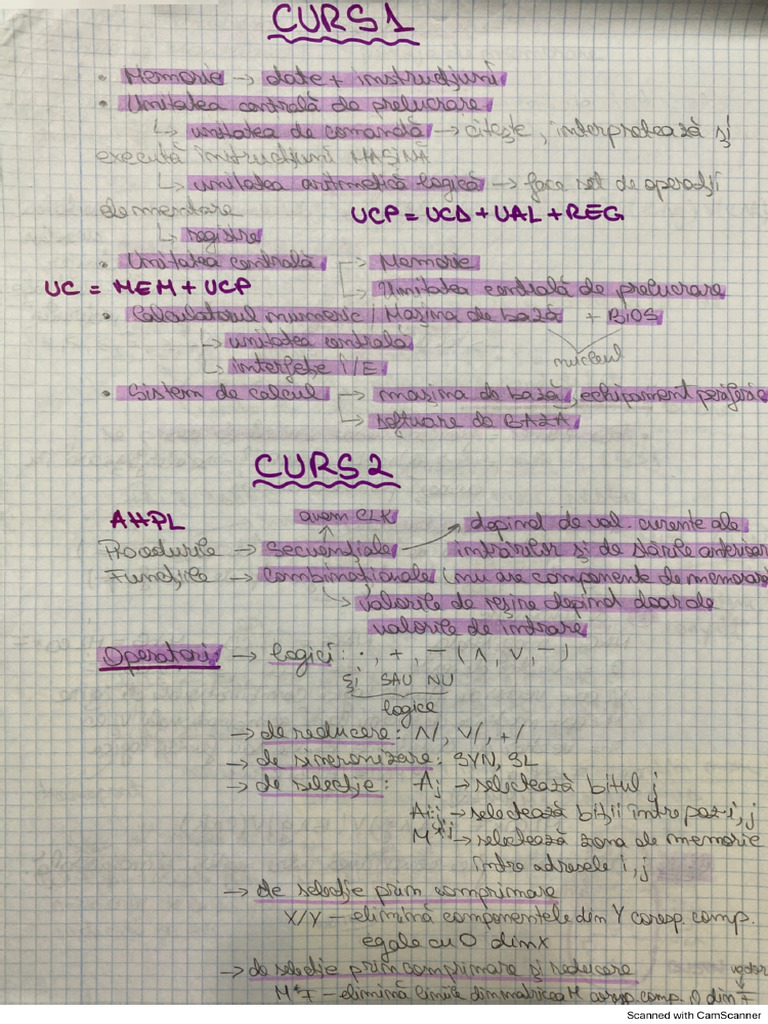 CURS 1
• Memorie → date + instrucțiuni
• Unitatea centrală de prelucrare
↳ unitatea de comandă → citește, interpretează și
execută instrucțiuni MAȘINĂ
↳ unitatea aritmetică logică → face set de operații
elementare
UCP = UCD + UAL + REG
↳ registre
• Unitatea centrală → Memorie
→ Unitatea centrală de prelucrare
UC = MEM + UCP
• Calculatorul numeric / Mașina de bază + BIOS
↳ unitatea centrală
nucleul
↳ interfețe I/E
• Sistem de calcul → mașina de bază, echipament periferic
↳ software de BAZA
CURS 2
AHPL
avem CLK
depind de val. curente ale
Procedurile → Secvențiale → intrărilor și de stările anterioare
Funcțiile → Combinaționale (nu are componente de memorare)
↳ valorile de ieșire depind doar de
valorile de intrare
Operatori → logici: ·, +, ‾ (∧, ∨, ‾)
ȘI SAU NU
logice
→ de reducere: ∧/, ∨/, +/
→ de sincronizare: SYN, SL
→ de selecție: Aj → selectează bitul j
Ai:j → selectează biții între poz. i, j
M^i:j → selectează zona de memorie
între adresele i, j
→ de selecție prin comprimare
X/Y – elimină componentele din Y coresp. comp.
egale cu 0 din X
→ de selecție prin comprimare și reducere
vector
M*F – elimină liniile din matricea M coresp. comp. 0 din F
Scanned with CamScanner